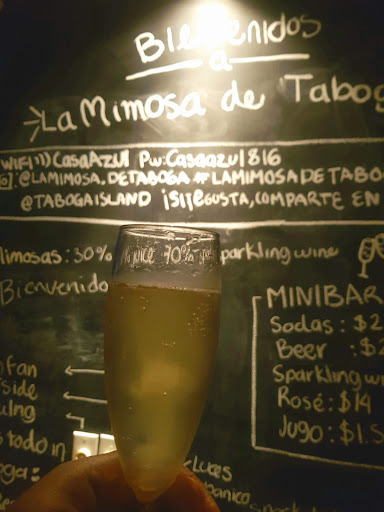 Bienvenidos
a
La Mimosa de Tabog
WIFI ))) CasaAzul Pw:Casaazul816
: @LAMIMOSA.DETABOGA #LAMIMOSADETABO
@TABOGAISLAND ¡SI te GUSTA, COMPARTE EN
Mimosas: 30% juice 70% sparkling wine
Bienvenido
MINIBAR
Sodas : $2
Beer : $2
Sparkling wi
Rosé : $14
Jugo : $1.5
fan
side
todo in
luces